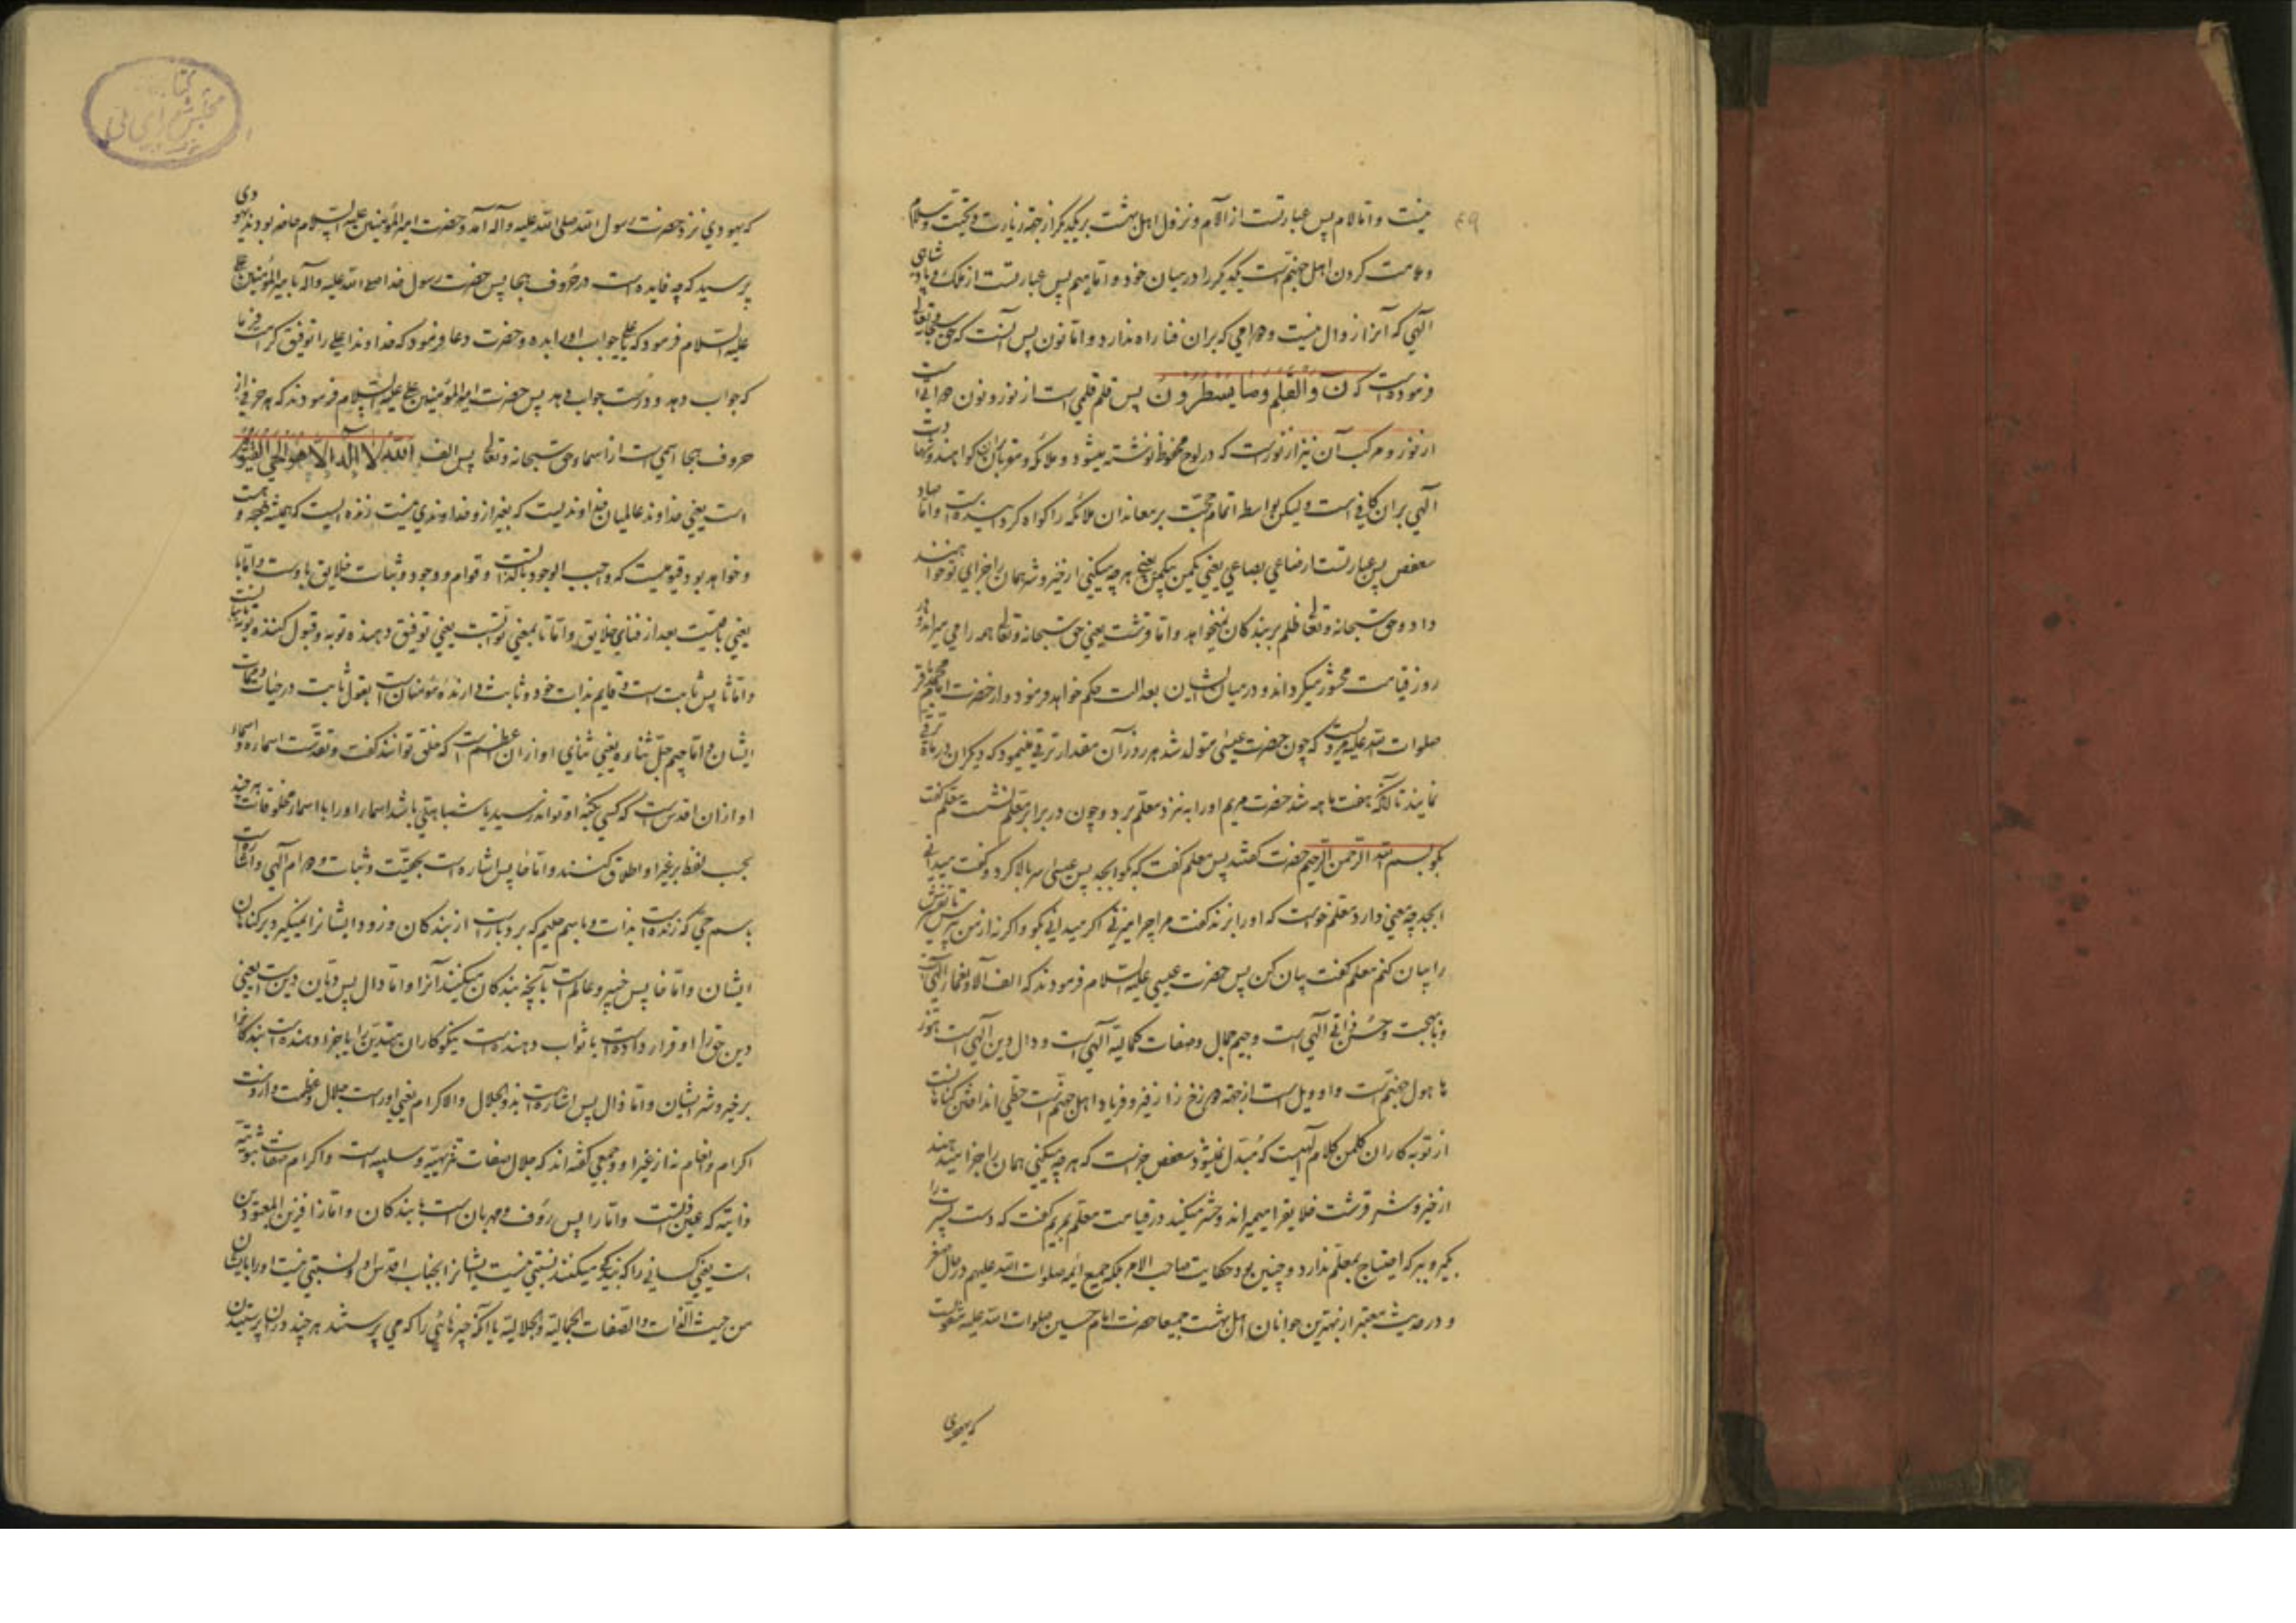 ۴۹
نیست و اما لام پس عبارتست از الآم و نزول اهل بهشت بر یکدیگر از جهة زیارت و تحیت و سلام
و ملامت کردن اهل جهنم است یکدیگر را در میان خود و اما میم پس عبارتست از ملک و پادشاهی
الهی که آنرا زوال نیست و دوامی که بر آن فنا راه ندارد و اما نون پس آنست که حق سبحانه و تعالی
فرموده است که ن والقلم وما یسطرون پس قلم قلمی است از نور و نون دواتی است
از نور و مرکب آن نیز از نور است که در لوح محفوظ نوشته میشود و ملائکه مقربان بر آن گواهند و شهادت
الهی بر آن کافی است ولیکن بواسطه اتمام حجت بر معاندان ملائکه را گواه گردانیده است و اما صاد
سعفص پس عبارتست از صاعی بصاعی یعنی یکمن بیکمن یعنی هر چه میکنی از خیر و شر همان را جزای تو خواهند
داد و حق سبحانه و تعالی ظلم بر بندکان نمیخواهد و اما قرشت یعنی حق سبحانه و تعالی همه را می میراند و در
روز قیامت محشور میکرداند و در میان ایشان بعدالت حکم خواهد فرمود و از حضرت امام محمد باقر
صلوات الله علیه مرویست که چون حضرت عیسی متولد شد هر روز آن مقدار ترقی مینمود که دیکران در ماه ترقی
نمایند تا آنکه هفت ماهه شد حضرت مریم او را به نزد معلم برد و چون در برابر معلم نشست معلم گفت
بکو بسم الله الرحمن الرحیم حضرت گفتند پس معلم گفت که بکو ابجد پس عیسی سر بالا کرد و گفت میدانی
ابجد چه معنی دارد معلم خواست که او را بزند گفت مرا چرا میزنی اکر میدانی بکو و اکر نه از من بپرس تا تفسیرش
را بیان کنم معلم گفت بیان کن پس حضرت عیسی علیه السلام فرمودند که الف آلاء و نعماء الهی است
و با بهجت و حسن الهی است و جیم جمال و صفات کمالیه الهی است و دال دین الهی است هوز
ها هول جهنم است و واو ویل است از جهة دوزخ زا زفیر و فریاد اهل جهنم است حطی انداختن کناهانست
از توبه کاران کلمن کلام الهیست که مبدل نمیشود سعفص جزاست که هر چه میکنی همان را جزا میدهند
از خیر و شر قرشت خلایق را میمیراند و حشر میکند در قیامت معلم بمریم گفت که دست پسرت را
بکیر و ببر که احتیاج بمعلم ندارد و چنین بود حکایت صاحب الامر بلکه جمیع ائمه صلوات الله علیهم در حال صغر
و در حدیث معتبر از بهترین جوانان اهل بهشت جمیعا حضرت امام حسین صلوات الله علیه منقولست
که یهودی
که یهودی نزد حضرت رسول الله صلی الله علیه و آله آمد و حضرت امیر المؤمنین علیه السلام حاضر بودند یهودی
پرسید که چه فایده است در حروف هجا پس حضرت رسول خدا صلی الله علیه و آله با امیر المؤمنین علی
علیه السلام فرمود که یا علی جواب او را بده و حضرت دعا فرمود که خداوندا علی را توفیق کرامت فرما
که جواب دهد و درست جواب دهد پس حضرت امیر المؤمنین علی علیه السلام فرمودند که هر حرفی از
حروف هجا اسمی است از اسماء حق سبحانه و تعالی پس الف الله لا اله الا هو الحی القیوم
است یعنی خداوند عالمیان خداوندیست که بغیر از و خداوندی نیست زنده ایست که همیشه بوده و هست
و خواهد بود قیومیست که واجب الوجود بالذات است و قوام و وجود و ثبات خلایق باوست و اما با
یعنی باقیست بعد از فنای خلایق و اما تا بمعنی توابست یعنی توفیق دهنده توبه و قبول کننده توبه ایشانست
و اما ثا پس ثابت است و قایم بذات خود و ثابت دارنده مؤمنان است بقول ثابت در حیات و ممات
ایشان و اما جیم جل ثناؤه یعنی ثنای او از آن عظیم تر است که خلق توانند گفت و تقدست اسماؤه و اسماء
او از آن اقدس است که کسی بکنه او تواند رسید یا شباهتی باشد اسماء او را با اسماء مخلوقات هر چند
بحسب لفظ بر غیر او اطلاق کنند و اما حا پس اشاره است بحقیت و ثبات و دوام الهی
باسم حی که زنده است بذات و باسم حلیم که بردبار است از بندکان و زود ایشانرا نمیگیرد بر کناهان
ایشان و اما خا پس خبیر و عالم است بآنچه بندکان میکنند آنرا و اما دال پس دیان دین است یعنی
دین حق را او قرار داده است یا ثواب دهنده است نیکوکاران را یا جزا دهنده است بندکانرا
بر خیر و شر ایشان و اما ذال پس اشاره است بذو الجلال والاکرام یعنی اوراست جلال و عظمت و از اوست
اکرام و انعام نه از غیر او و جمعی گفته اند که جلال صفات تنزیهیه و سلبیه است و اکرام صفات ثبوتیه
ذاتیه که عین ذاتست و اما را پس رؤف و مهربان است به بندکان و اما زا فزین المعبودین
است یعنی کسانی را که بندکی میکنند نسبتی نیست ایشانرا بجناب اقدس او و نسبتی نیست او را بایشان
من حیث الذات والصفات الجمالیة والجلالیة یا آنکه چیزهائی را که می پرستند هر چند در آن پرستیدن